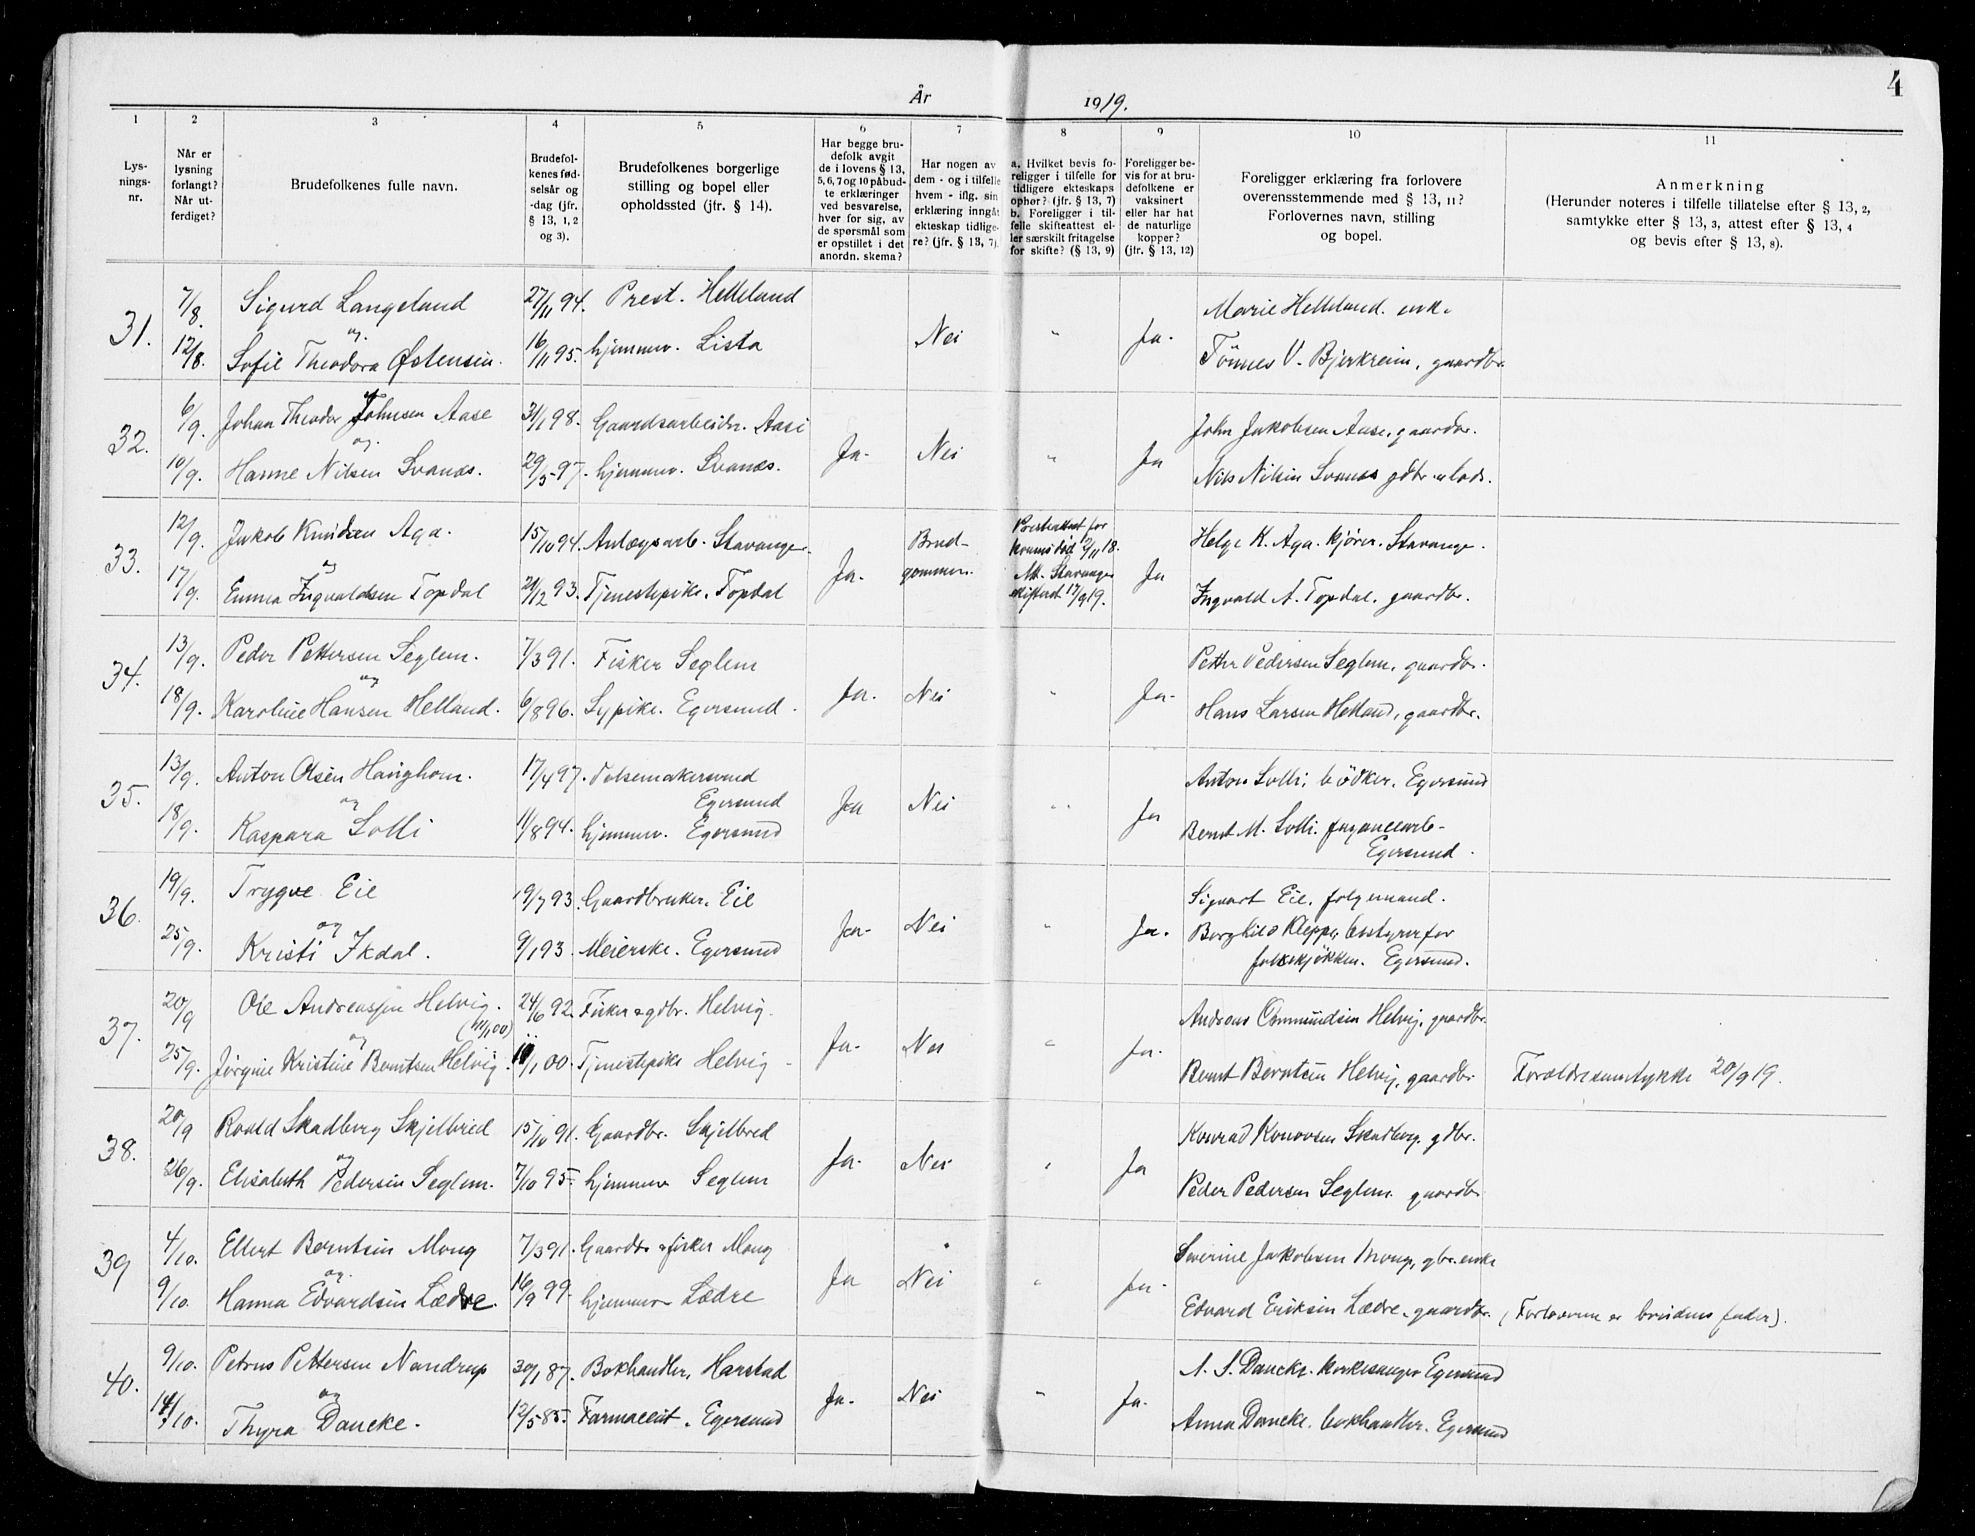 4
År 1919.
1 2 3 4 5 6 7 8 9 10 11
Lys-
nings-
nr.
Når er
lysning
forlangt?
Når ut-
ferdiget?
Brudefolkenes fulle navn.
Brudefol-
kenes fød-
selsår og
-dag (jfr.
§ 13, 1, 2
og 3).
Brudefolkenes borgerlige
stilling og bopel eller
opholdssted (jfr. § 14).
Har begge bru-
defolk avgit
de i lovens § 13,
5, 6, 7 og 10 påbud-
te erklæringer
ved besvarelse,
hver for sig, av
de spørsmål som
er opstillet i det
anordn. skema?
Har nogen av
dem - og i tilfelle
hvem - iflg. sin
erklæring inngåt
ekteskap tidlige-
re? (jfr. § 13, 7).
a. Hvilket bevis fo-
religger i tilfelle for
tidligere ekteskaps
ophør? (jfr. § 13, 7)
b. Foreligger i til-
felle skifteattest el-
ler særskilt fritagelse
for skifte? (§ 13, 9)
Foreligger be-
vis for at bru-
defolkene er
vaksinert
eller har hat
de naturlige
kopper?
(jfr. § 13, 12)
Foreligger erklæring fra forlovere
overensstemmende med § 13, 11?
Forlovernes navn, stilling
og bopel.
Anmerkning
(Herunder noteres i tilfelle tillatelse efter § 13, 2,
samtykke efter § 13, 3, attest efter § 13, 4
og bevis efter § 13, 8).
31. 7/8. Sigurd Langeland 27/11 94. Prest. Helleland Marie Helleland. enk.
og Nei " Ja.
12/8. Sofie Theodora Østensen. 16/11 95. hjemmev. Lista Tönnes V. Bjerkreim, gaardbr.
32. 6/9. Johan Theodor Johnsen Aase 31/1 98. Gaardsarbeider. Aase John Jakobsen Aase, gaardbr.
og Ja. Nei " Ja
10/9. Hanne Nilsen Svanæs. 29/5 97. hjemmev. Svanæs. Nils Nilsen Svanæs gdbr. & lods.
33. 12/9. Jakob Knudsen Aga. 15/10 94. Anlægsarb. Stavanger. Brud- Presteattest for Helge K. Aga. kjører. Stavanger.
og Ja. gommen. konens død /11 18. Ja
17/9. Emma Ingvaldsen Topdal 21/12 93. Tjenestepike. Topdal Att. Stavanger Ingvald A. Topdal. gaardbr.
skifteret 17/9 19.
34. 13/9. Peder Pettersen Seglem. 7/3 91. Fisker Seglem Petter Pedersen Seglem, gaardbr.
og Ja. Nei " Ja.
18/9. Karoline Hansen Helland. 6/8 96. Sypike. Egersund. Hans Larsen Helland, gaardbr.
35. 13/9. Anton Olsen Haughom. 17/4 97. Pølsemakersvend Anton Solli, bödker. Egersund
og Egersund Ja Nei " Ja
18/9. Kaspara Solli 11/8 94. hjemmev. Egersund Bernt M. Solli. fayancearb-
Egersund.
36. 19/9. Trygve Eie 19/7 93. Gaardbruker. Eie Sigvart Eie, folgemand.
og Ja. Nei " Ja.
25/9. Kristi Ikdal. 9/1 93. Meierske. Egersund Borghild Kleppe, bestyrer for
folkekjøkken. Egersund.
37. 20/9 Ole Andreassen Helvig. 24/6 92 Fisker & gdbr. Helvig. Andreas Ommundsen Helvig, gaardbr.
(11/1 00)
og Ja. Nei " Ja.
25/9. Jørgine Kristine Berntsen Helvig. 11/1 00. Tjenestepike Helvig Bernt Berntsen Helvig, gaardbr Forældresamtykke 20/9 19.
38. 20/9 Roald Skadberg Skjelbred 15/10 91. Gaardbr. Skjelbred Konrad Skadberg. gdbr.
og Ja. Nei " Ja
26/9. Elisabeth Pedersen Seglem. 7/10 95. hjemmev Seglem Peder Pedersen Seglem. gaardbr
39 4/10. Ellert Berntsen Mong 7/3 91. Gaardbr & fisker Mong Severine Jakobsen Mong, gbr.enke
og. Ja Nei " Ja.
9/10. Hanna Edvardsen Lædre. 16/9 99. hjemmev. Lædre Edvard Eriksen Lædre. gaardbr. (Forloveren er brudens fader).
40. 9/10. Petrus Pettersen Nandrup 30/1 87. Bokhandler, Harstad A. S. Dancke. kirkesanger Egersund
og Ja. Nei " Ja.
14/10. Thyra Dancke. 12/5 85. Farmaceut. Egersund Anna Dancke. bokhandler. Egersund